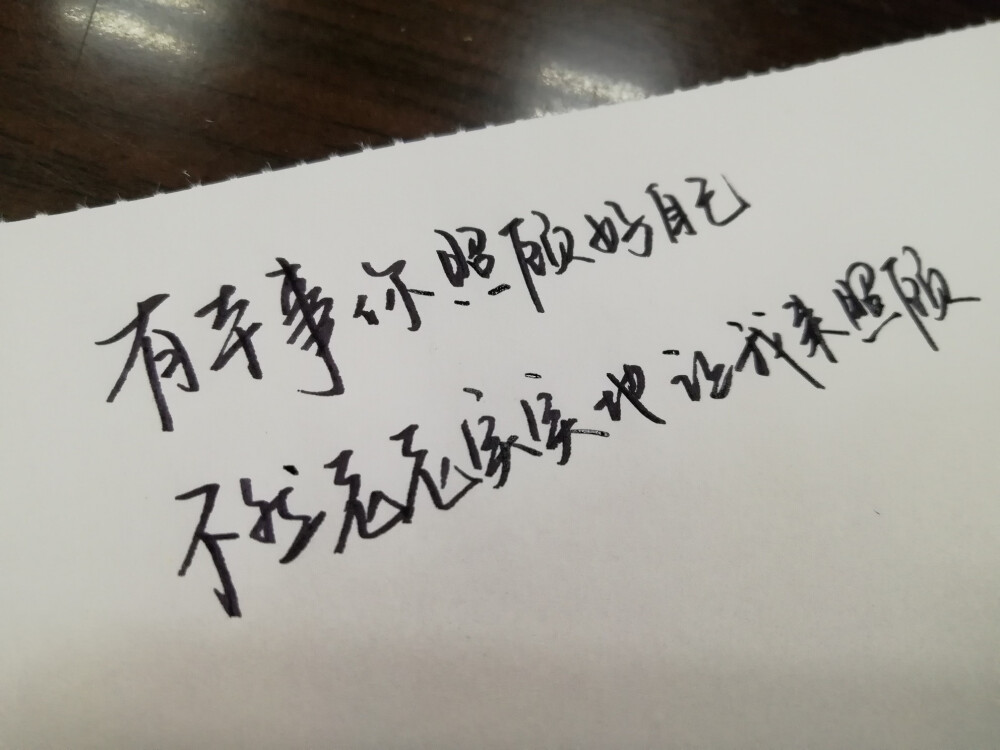 有本事你照顾好自己
不然老老实实地让我来照顾